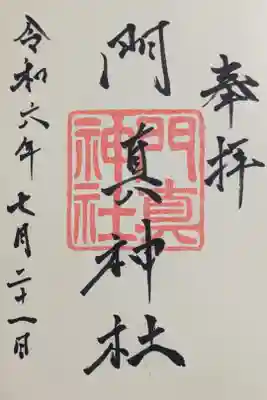 奉拝
門真神社
門真神社
令和六年七月二十一日